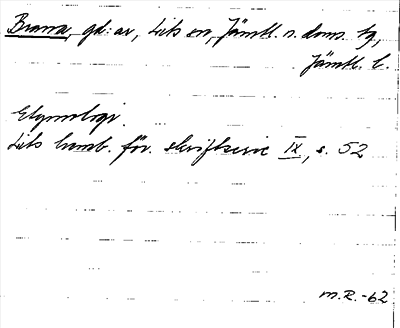 Brama, gd: ar, Lits sn, Jämtl. n. doms. tg,
Jämtl. l.
Etymologi.
Lits hemb. för. skriftserie IX, s. 52
M.R. -62